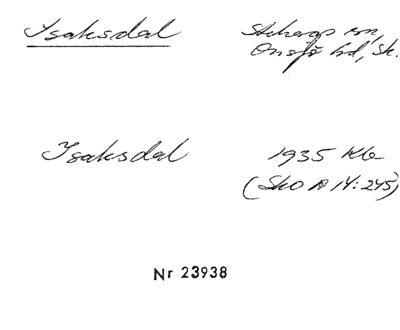 Isaksdal Stehags sn,
Onsjö hd, Sk.
Isaksdal 1935 Kla
(SkO A 14:245)
Nr 23938